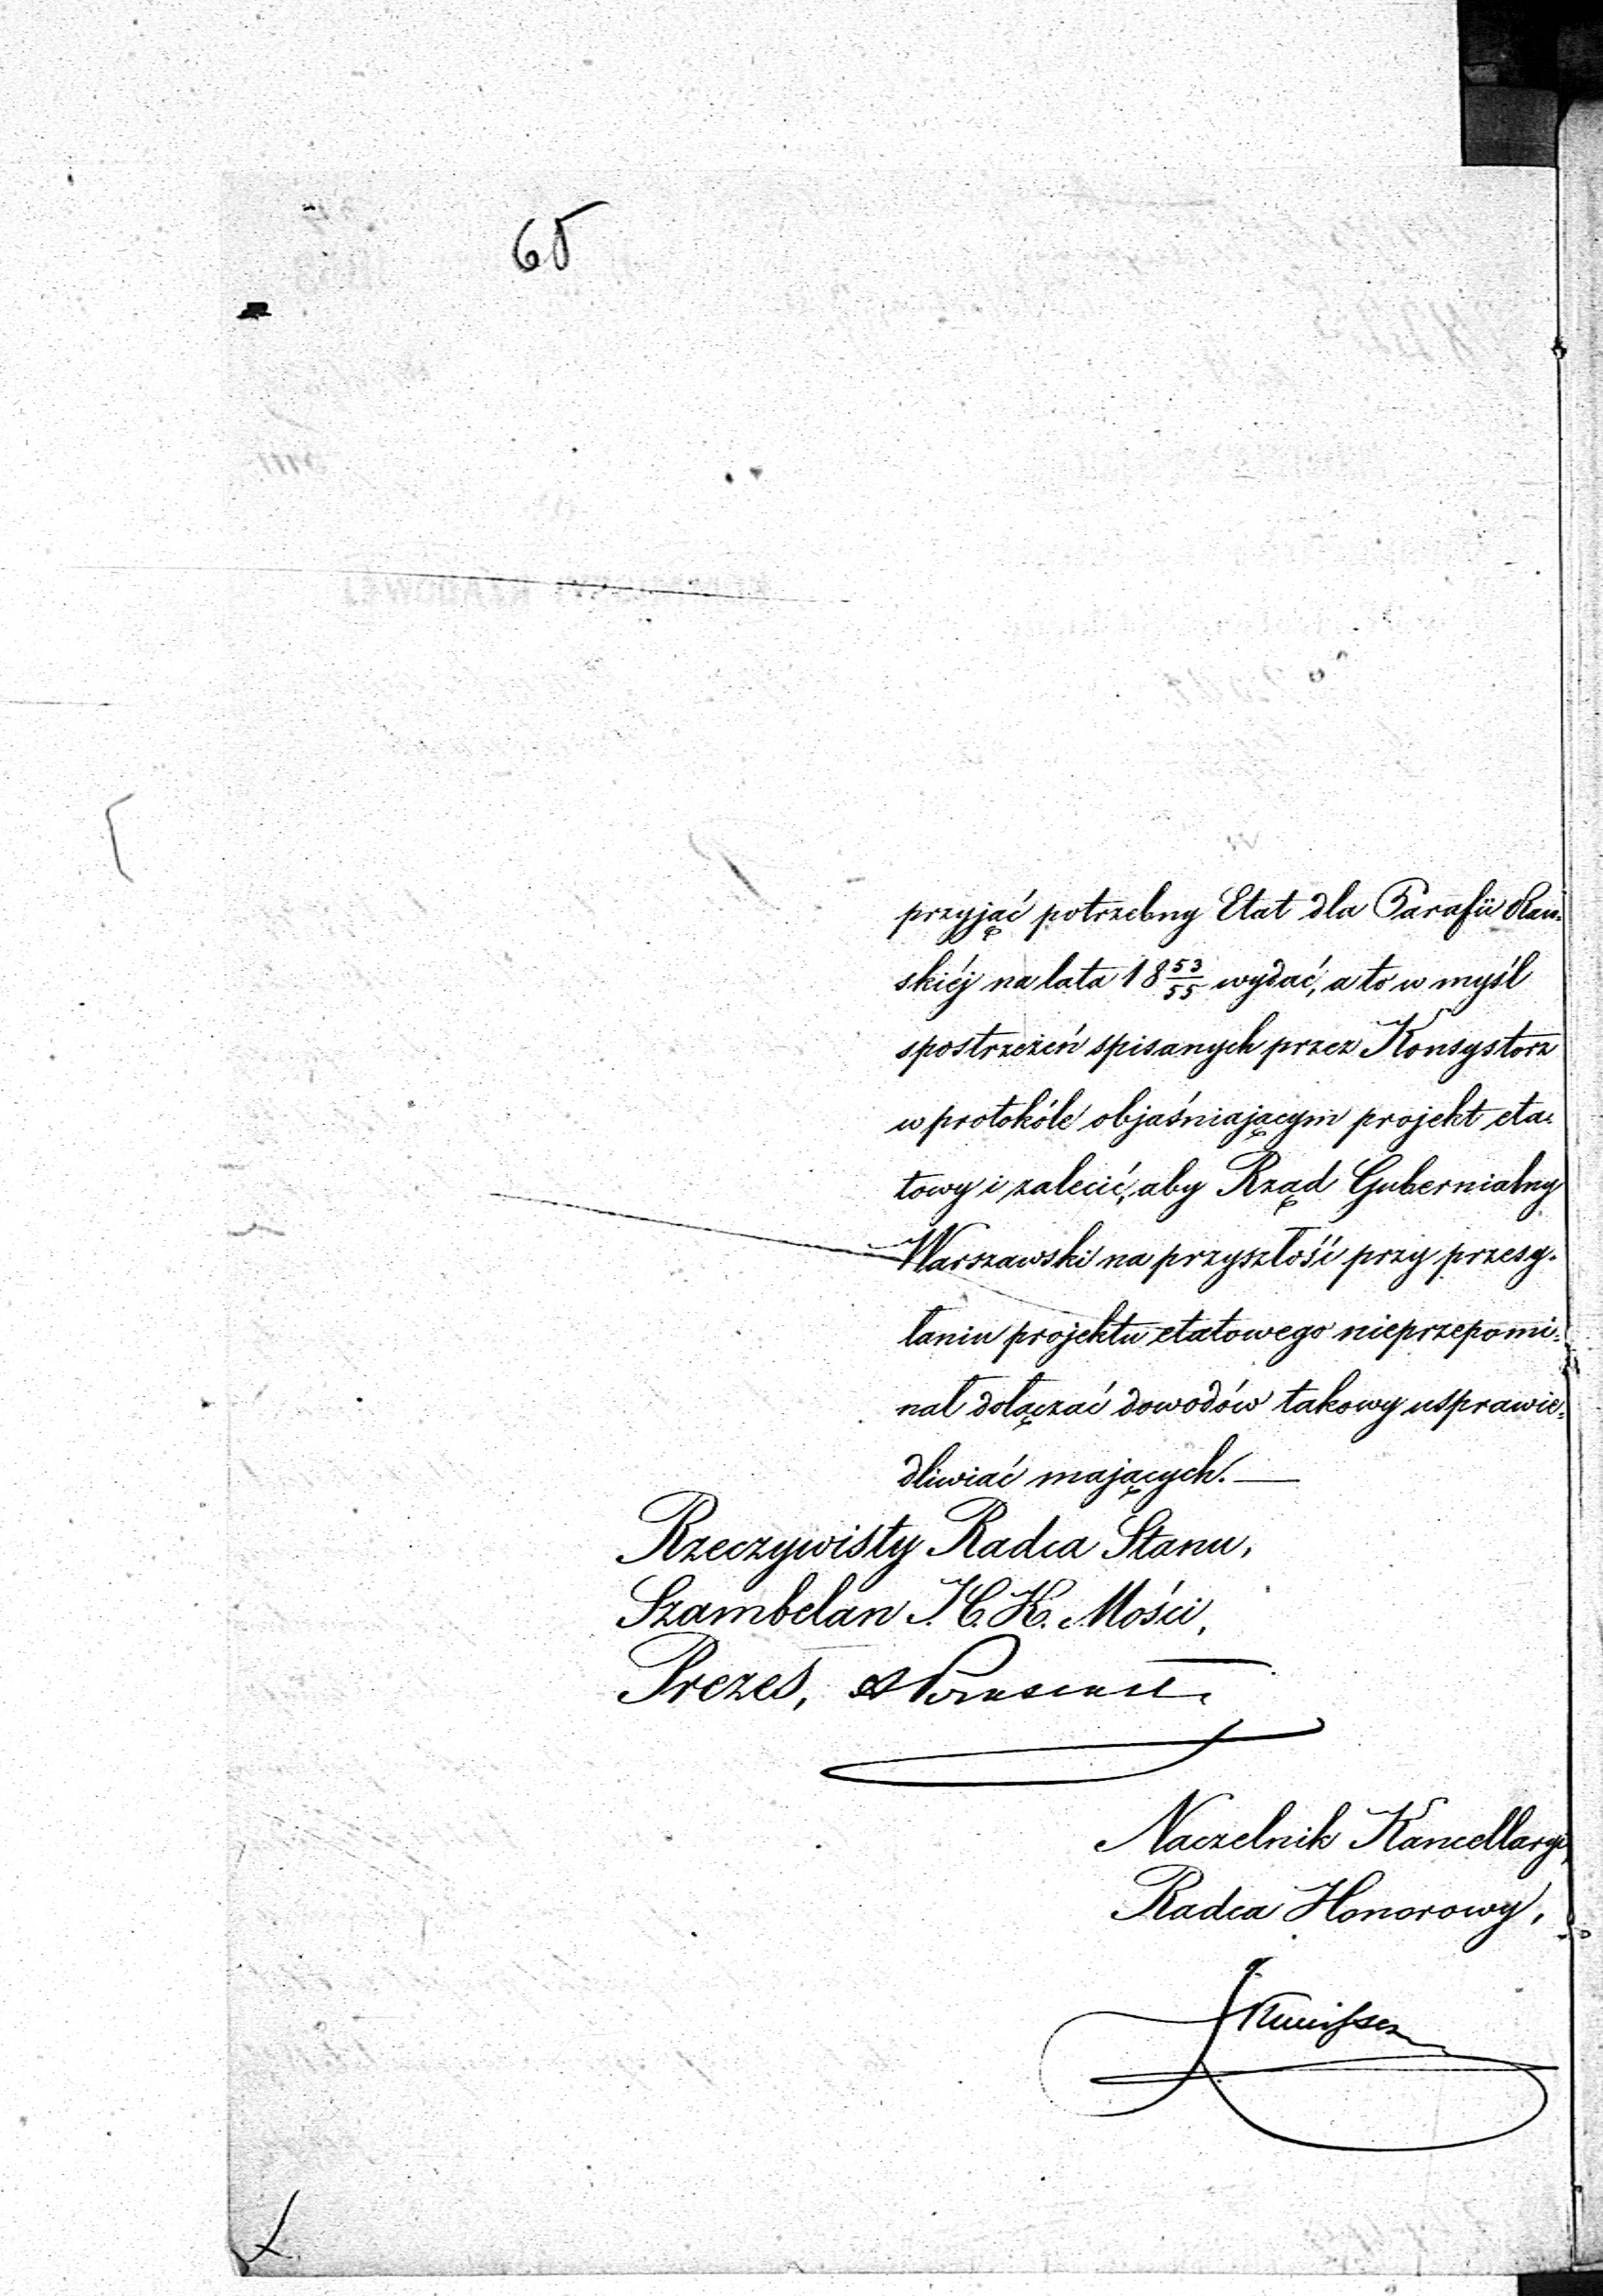 65
przyjąć potrzebny Etat dla Parafii Raw=
skiéj na lata 18 53/55 wydać, a to w myśl
spostrzeżeń spisanych przez Konsystorz
w protokóle objaśniającym projekt eta=
towy i zalecić, aby Rząd Gubernialny
Warszawski na przyszłość przy przesy=
łaniu projektu etatowego nieprzepomi=
nał dołączać dowodów takowy usprawie=
dliwiać mających. —
Rzeczywisty Radca Stanu,
Szambelan J. C. K. Mości,
Prezes,
Naczelnik Kancellaryi,
Radca Honorowy,